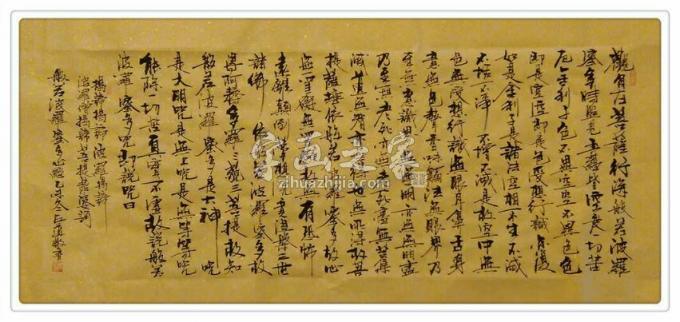 觀自在菩薩行深般若波羅
蜜多時照見五蘊皆空度一切苦
厄舍利子色不異空空不異色色
即是空空即是色受想行識亦復
如是舍利子是諸法空相不生不滅
不垢不淨不增不減是故空中無
色無受想行識無眼耳鼻舌身
意無色聲香味觸法無眼界乃
至無意識界無無明亦無無明盡
乃至無老死亦無老死盡無苦集
滅道無智亦無得以無所得故菩
提薩埵依般若波羅蜜多故心
無罣礙無罣礙故無有恐怖
遠離顛倒夢想究竟涅槃三世
諸佛依般若波羅蜜多故
得阿耨多羅三藐三菩提故知
般若波羅蜜多是大神咒
是大明咒是無上咒是無等等咒
能除一切苦真實不虛故說般若
波羅蜜多咒即說咒曰
揭諦揭諦波羅揭諦
波羅僧揭諦菩提薩婆訶
般若波羅蜜多心經
字画之家
zihuazhijia.com